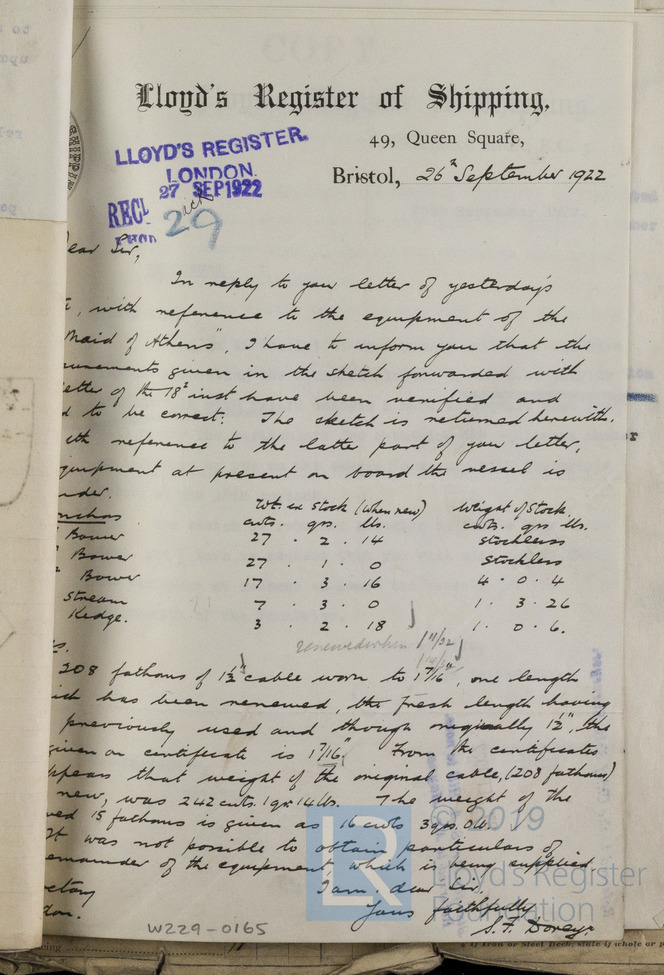 Lloyd's Register of Shipping,
49, Queen Square,
Bristol, 26th September 1922
LLOYD'S REGISTER.
LONDON.
27 SEP 1922
RECD
29
ear Sir,
In reply to your letter of yesterday's
, with reference to the equipment of the
Maid of Athens", I have to inform you that the
surements given in the sketch forwarded with
etter of the 18th inst have been verified and
d to be correct. The sketch is returned herewith.
ith reference to the latter part of your letter,
quipment at present on board the vessel is
nder.
nchors Wt. ex Stock (when new) Weight of Stock.
cwts. qrs. lbs. cwts. qrs lbs.
Bower 27 . 2 . 14 Stockless
Bower 27 . 1 . 0 Stockless
Bower 17 . 3 . 16 4 . 0 . 4
Stream 7 . 3 . 0 1 . 3 . 26
Kedge. 3 . 2 . 18 1 . 0 . 6.
renewed when
s.
208 fathoms of 1½" cable worn to 1 7/16", one length
ich has been renewed, the fresh length having
previously used and though originally 1½", the
given on certificate is 1 7/16". From the certificates
ppears that weight of the original cable, (208 fathoms)
new, was 242 cwts. 1 qr 14 lbs. The weight of the
wed 15 fathoms is given as 16 cwts 3 qrs. 0 lb.
It was not possible to obtain particulars of
emainder of the equipment, which is being supplied.
I am, dear Sir,
Yours faithfully
S. F. Dorey.
cretary
don.
W229-0165
© 2019
LR
Lloyd's Register
Foundation
if Iron or Steel Deck, state if whole or p